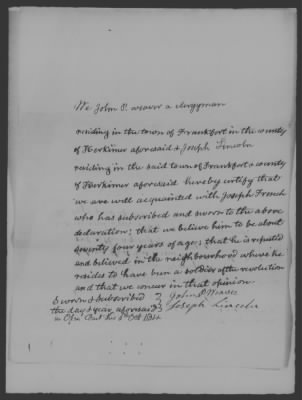 We John P. weaver a clergyman
residing in the town of Frankfort in the county
of Herkimer aforesaid & Joseph Lincoln
residing in the said town of Frankfort & county
of Herkimer aforesaid hereby certify that
we are well acquainted with Joseph French
who has subscribed and sworn to the above
declaration; that we believe him to be about
seventy four years of age; that he is reputed
and believed in the neighbourhood where he
resides to have been a soldier of the revolution
and that we concur in that opinion.
Sworn & subscribed } John P Weaver
the day & year aforesaid } Joseph Lincoln
in Open Court this Oct